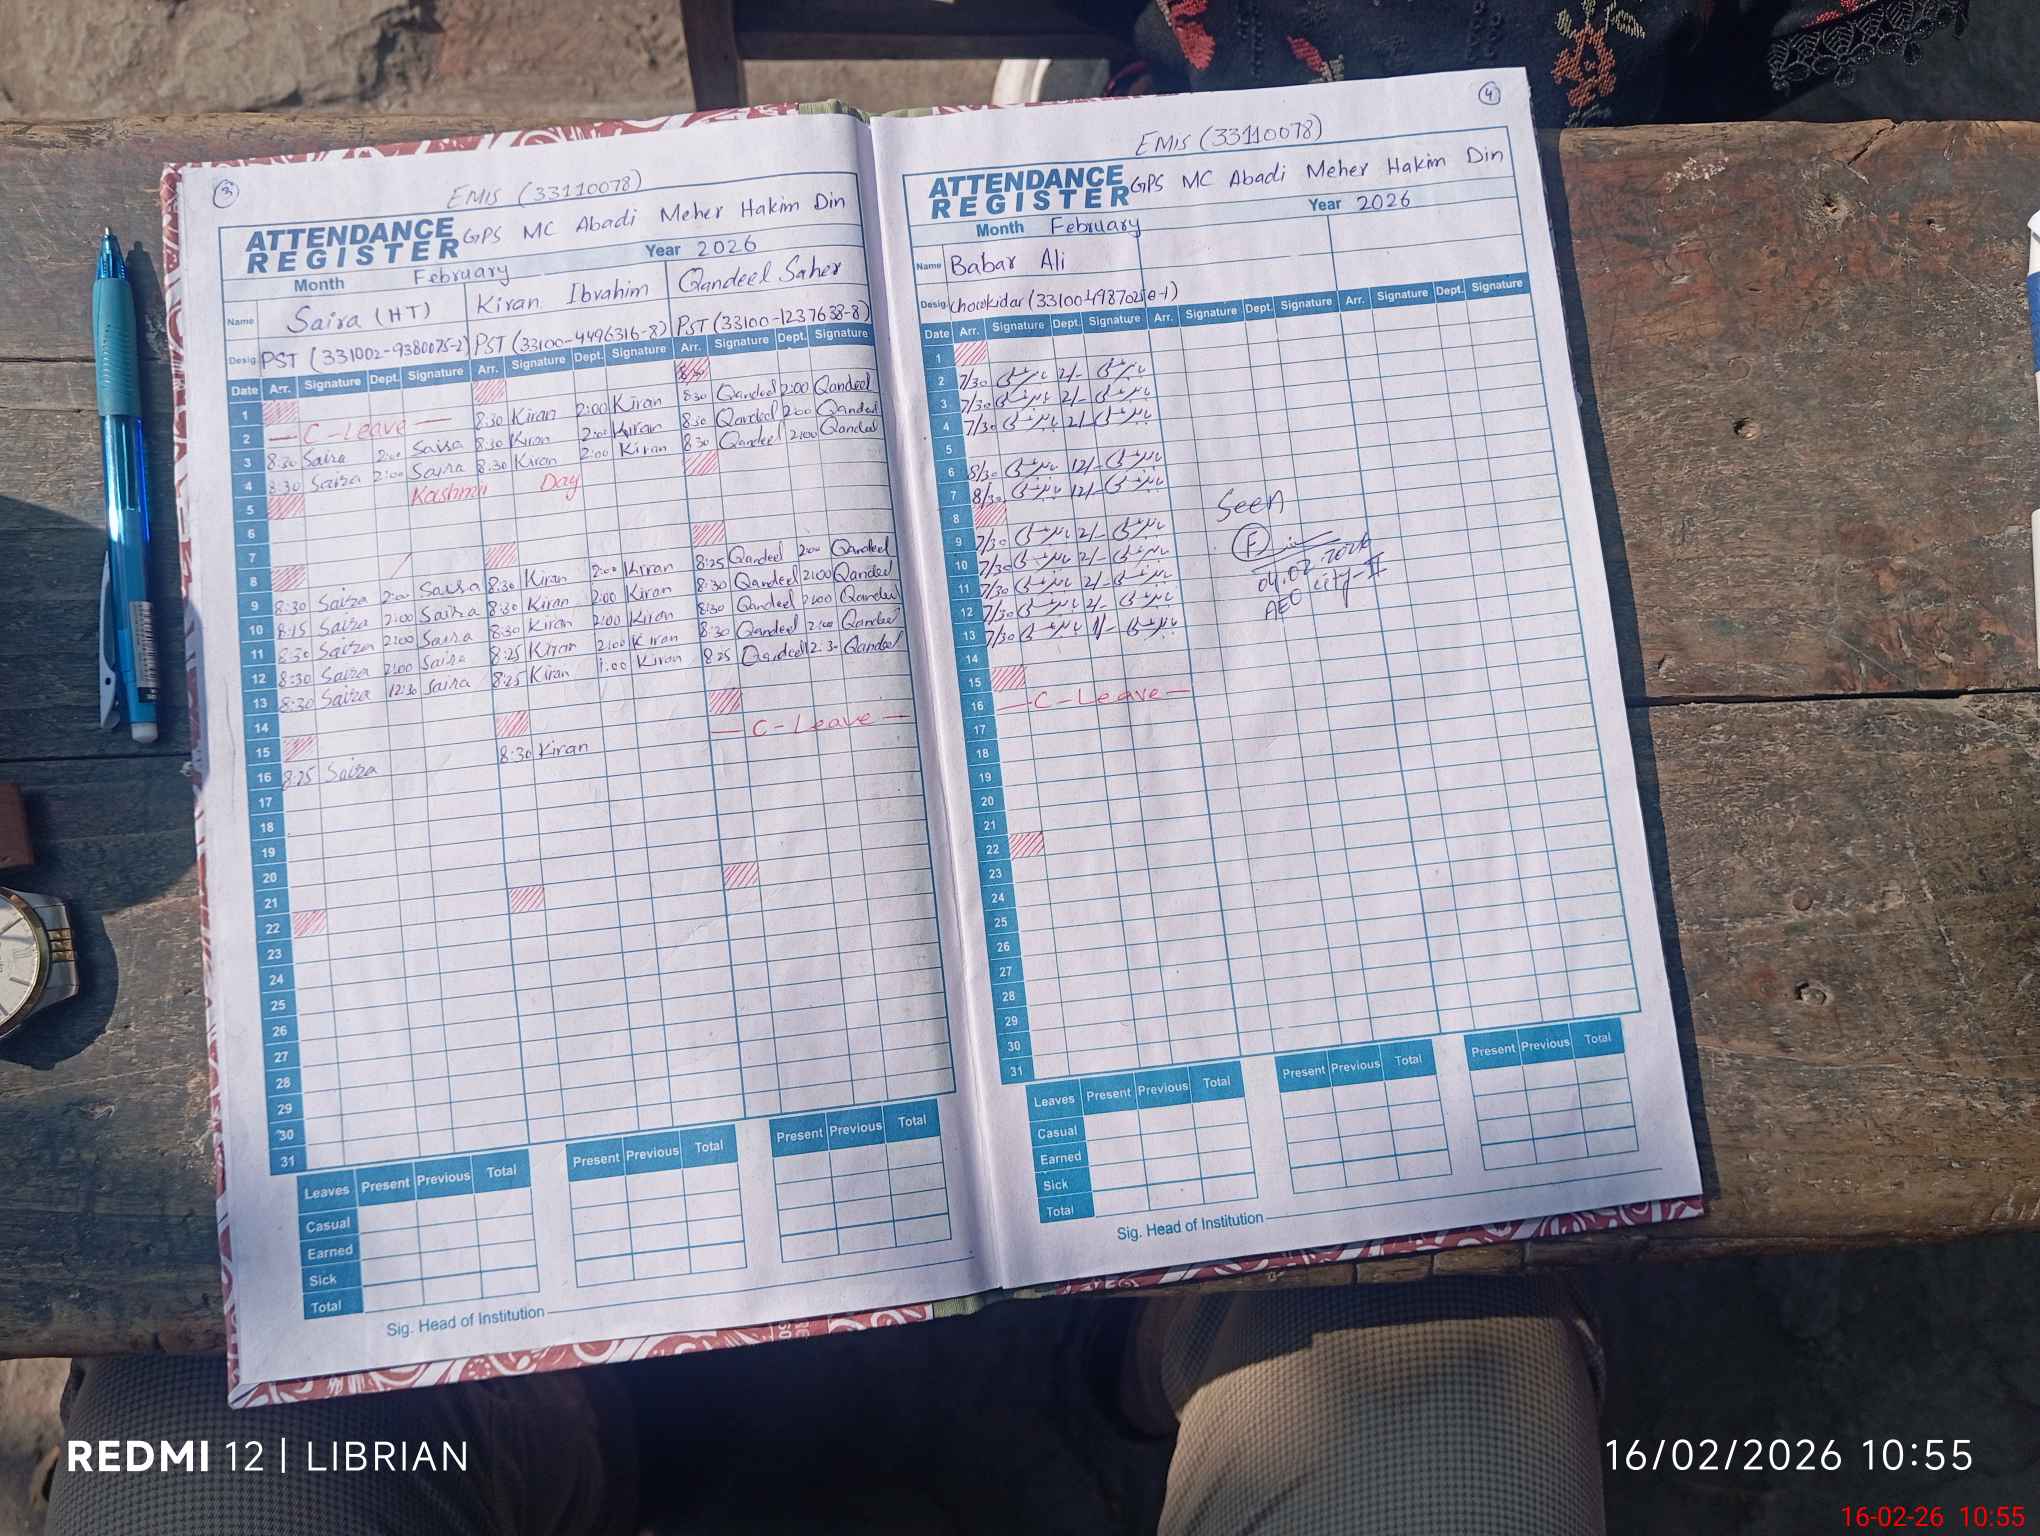 3
EMIS (33110078)
ATTENDANCE REGISTER GPS MC Abadi Meher Hakim Din
Month February Year 2026
Name Saira (HT) Kiran Ibrahim Qandeel Saher
Desig. PST (331002-9380075-2) PST (33100-4496316-8) PST (33100-1237638-8)
Date Arr. Signature Dept. Signature Arr. Signature Dept. Signature Arr. Signature Dept. Signature
1
2 — C-Leave — 8:30 Kiran 2:00 Kiran 8:30 Qandeel 2:00 Qandeel
3 8:30 Saira 2:00 Saira 8:30 Kiran 2:00 Kiran 8:30 Qandeel 2:00 Qandeel
4 8:30 Saira 2:00 Saira 8:30 Kiran 2:00 Kiran 8:30 Qandeel 2:00 Qandeel
5 Kashmir Day
6
7
8
9 8:30 Saira 2:00 Saira 8:30 Kiran 2:00 Kiran 8:25 Qandeel 2:00 Qandeel
10 8:15 Saira 2:00 Saira 8:30 Kiran 2:00 Kiran 8:30 Qandeel 2:00 Qandeel
11 8:30 Saira 2:00 Saira 8:30 Kiran 2:00 Kiran 8:30 Qandeel 2:00 Qandeel
12 8:30 Saira 2:00 Saira 8:25 Kiran 2:00 Kiran 8:30 Qandeel 2:00 Qandeel
13 8:30 Saira 12:30 Saira 8:25 Kiran 1:00 Kiran 8:25 Qandeel 12:3- Qandeel
14
15
16 8:25 Saira 8:30 Kiran — C-Leave —
17
18
19
20
21
22
23
24
25
26
27
28
29
30
31
Leaves Present Previous Total Present Previous Total Present Previous Total
Casual
Earned
Sick
Total
Sig. Head of Institution
4
EMIS (33110078)
ATTENDANCE REGISTER GPS MC Abadi Meher Hakim Din
Month February Year 2026
Name Babar Ali
Desig. chowkidar
Date Arr. Signature Dept. Signature Arr. Signature Dept. Signature Arr. Signature Dept. Signature
1
2 7/30 2/-
3 7/30 2/-
4 7/30 2/-
5
6 8/30 12/-
7 8/30 12/-
8
9 7/30 2/-
10 7/30 2/-
11 7/30 2/-
12 7/30 2/-
13 7/30 1/-
14
15
16 — C-Leave —
17
18
19
20
21
22
23
24
25
26
27
28
29
30
31
Seen
04.02.2026
AEO City-II
Leaves Present Previous Total Present Previous Total Present Previous Total
Casual
Earned
Sick
Total
Sig. Head of Institution
REDMI 12 | LIBRIAN
16/02/2026 10:55
16-02-26 10:55